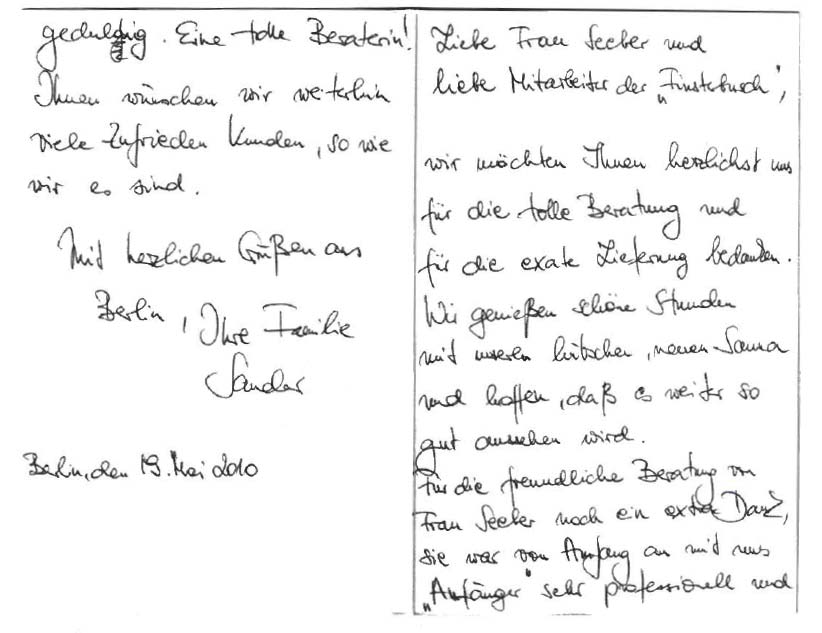 Liebe Frau Seeber und
liebe Mitarbeiter der „Finsterbusch",
wir möchten Ihnen herzlichst uns
für die tolle Beratung und
für die exate Lieferung bedanken.
Wir genießen schöne Stunden
mit unseren hübschen, neuen Sauna
und hoffen, daß es weiter so
gut aussehen wird.
Für die freundliche Beratung von
Frau Seeber noch ein extra Dank,
sie war von Anfang an mit uns
„Anfänger" sehr professionell und
geduldig. Eine tolle Beraterin!
Ihnen wünschen wir weiterhin
viele zufrieden Kunden, so wie
wir es sind.
Mit herzlichen Grüßen aus
Berlin, Ihre Familie
Sander
Berlin, den 19. Mai 2010